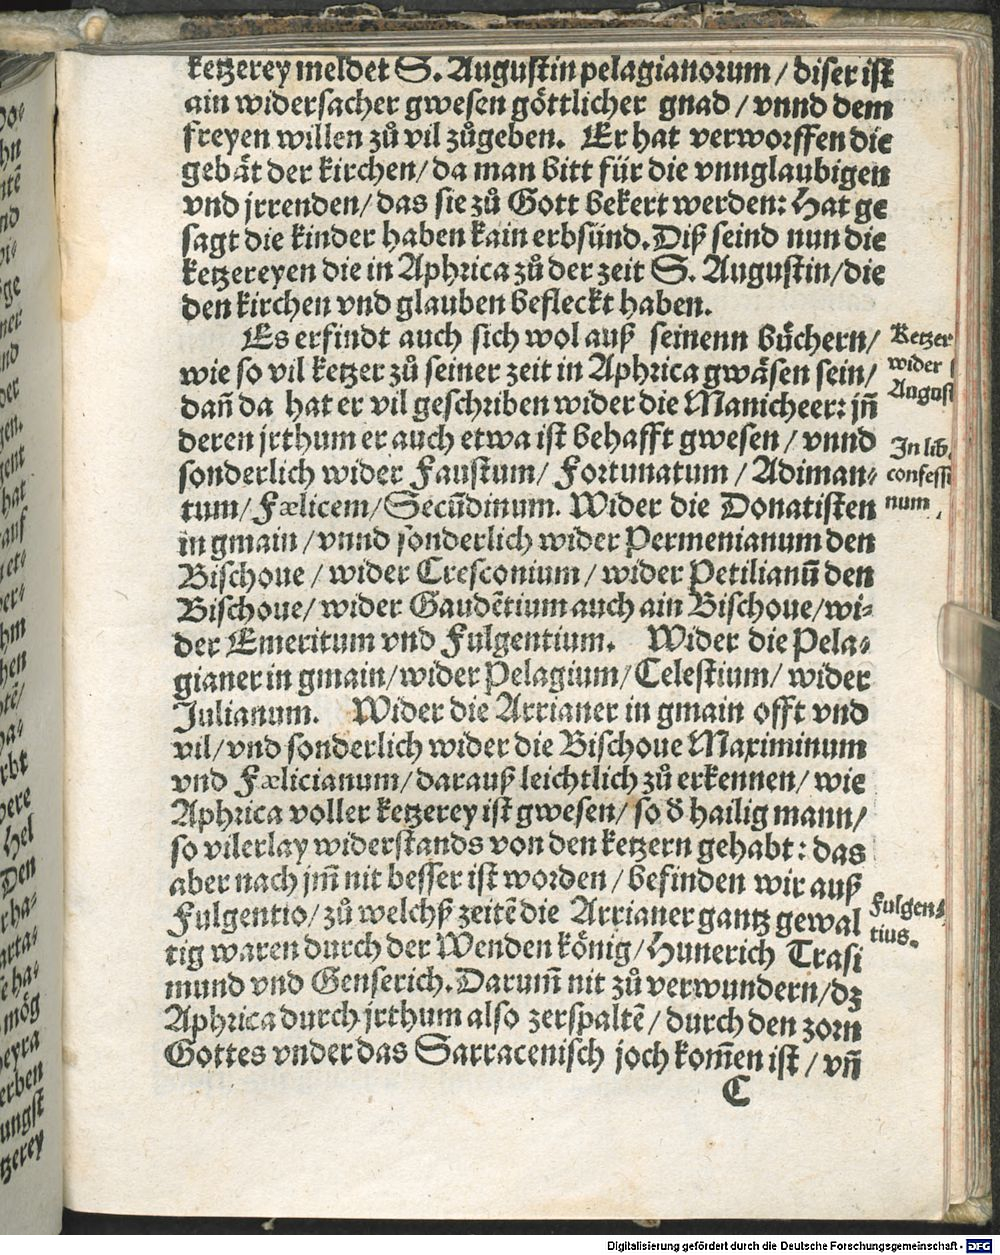 ketzerey meldet S. Augustin pelagianorum / diser ist
ain widersacher gwesen göttlicher gnad / vnnd dem
freyen willen zů vil zůgeben. Er hat verworffen die
gebät der kirchen / da man bitt für die vnnglaubigen
vnd jrrenden / das sie zů Gott bekert werden: Hat ge
sagt die kinder haben kain erbsünd. Diß seind nun die
ketzereyen die in Aphrica zů der zeit S. Augustin / die
den kirchen vnd glauben befleckt haben.
Es erfindt auch sich wol auß seinenn bůchern /
wie so vil ketzer zů seiner zeit in Aphrica gwäsen sein /
dañ da hat er vil geschriben wider die Manicheer: jñ
deren jrthum er auch etwa ist behafft gwesen / vnnd
sonderlich wider Faustum / Fortunatum / Adiman⸗
tum / Fælicem / Secūdinum. Wider die Donatisten
in gmain / vnnd sonderlich wider Permenianum den
Bischoue / wider Cresconium / wider Petilianū den
Bischoue / wider Gaudētium auch ain Bischoue / wi⸗
der Emeritum vnd Fulgentium. Wider die Pela⸗
gianer in gmain / wider Pelagium / Celestium / wider
Julianum. Wider die Arrianer in gmain offt vnd
vil / vnd sonderlich wider die Bischoue Maximinum
vnd Fælicianum / darauß leichtlich zů erkennen / wie
Aphrica voller ketzerey ist gwesen / so d̄ hailig mann /
so vilerlay widerstands von den ketzern gehabt: das
aber nach jm̄ nit besser ist worden / befinden wir auß
Fulgentio / zů welchß zeitē die Arrianer gantz gewal
tig waren durch der Wenden könig / Hunerich Trasi
mund vnd Genserich. Darum̄ nit zů verwundern / dz
Aphrica durch jrthum also zerspaltē / durch den zorn
Gottes vnder das Sarracenisch joch kom̄en ist / vñ
C
Ketzer
wider
August
In lib.
confessi
num
Fulgen⸗
tius.
Digitalisierung gefördert durch die Deutsche Forschungsgemeinschaft - DFG